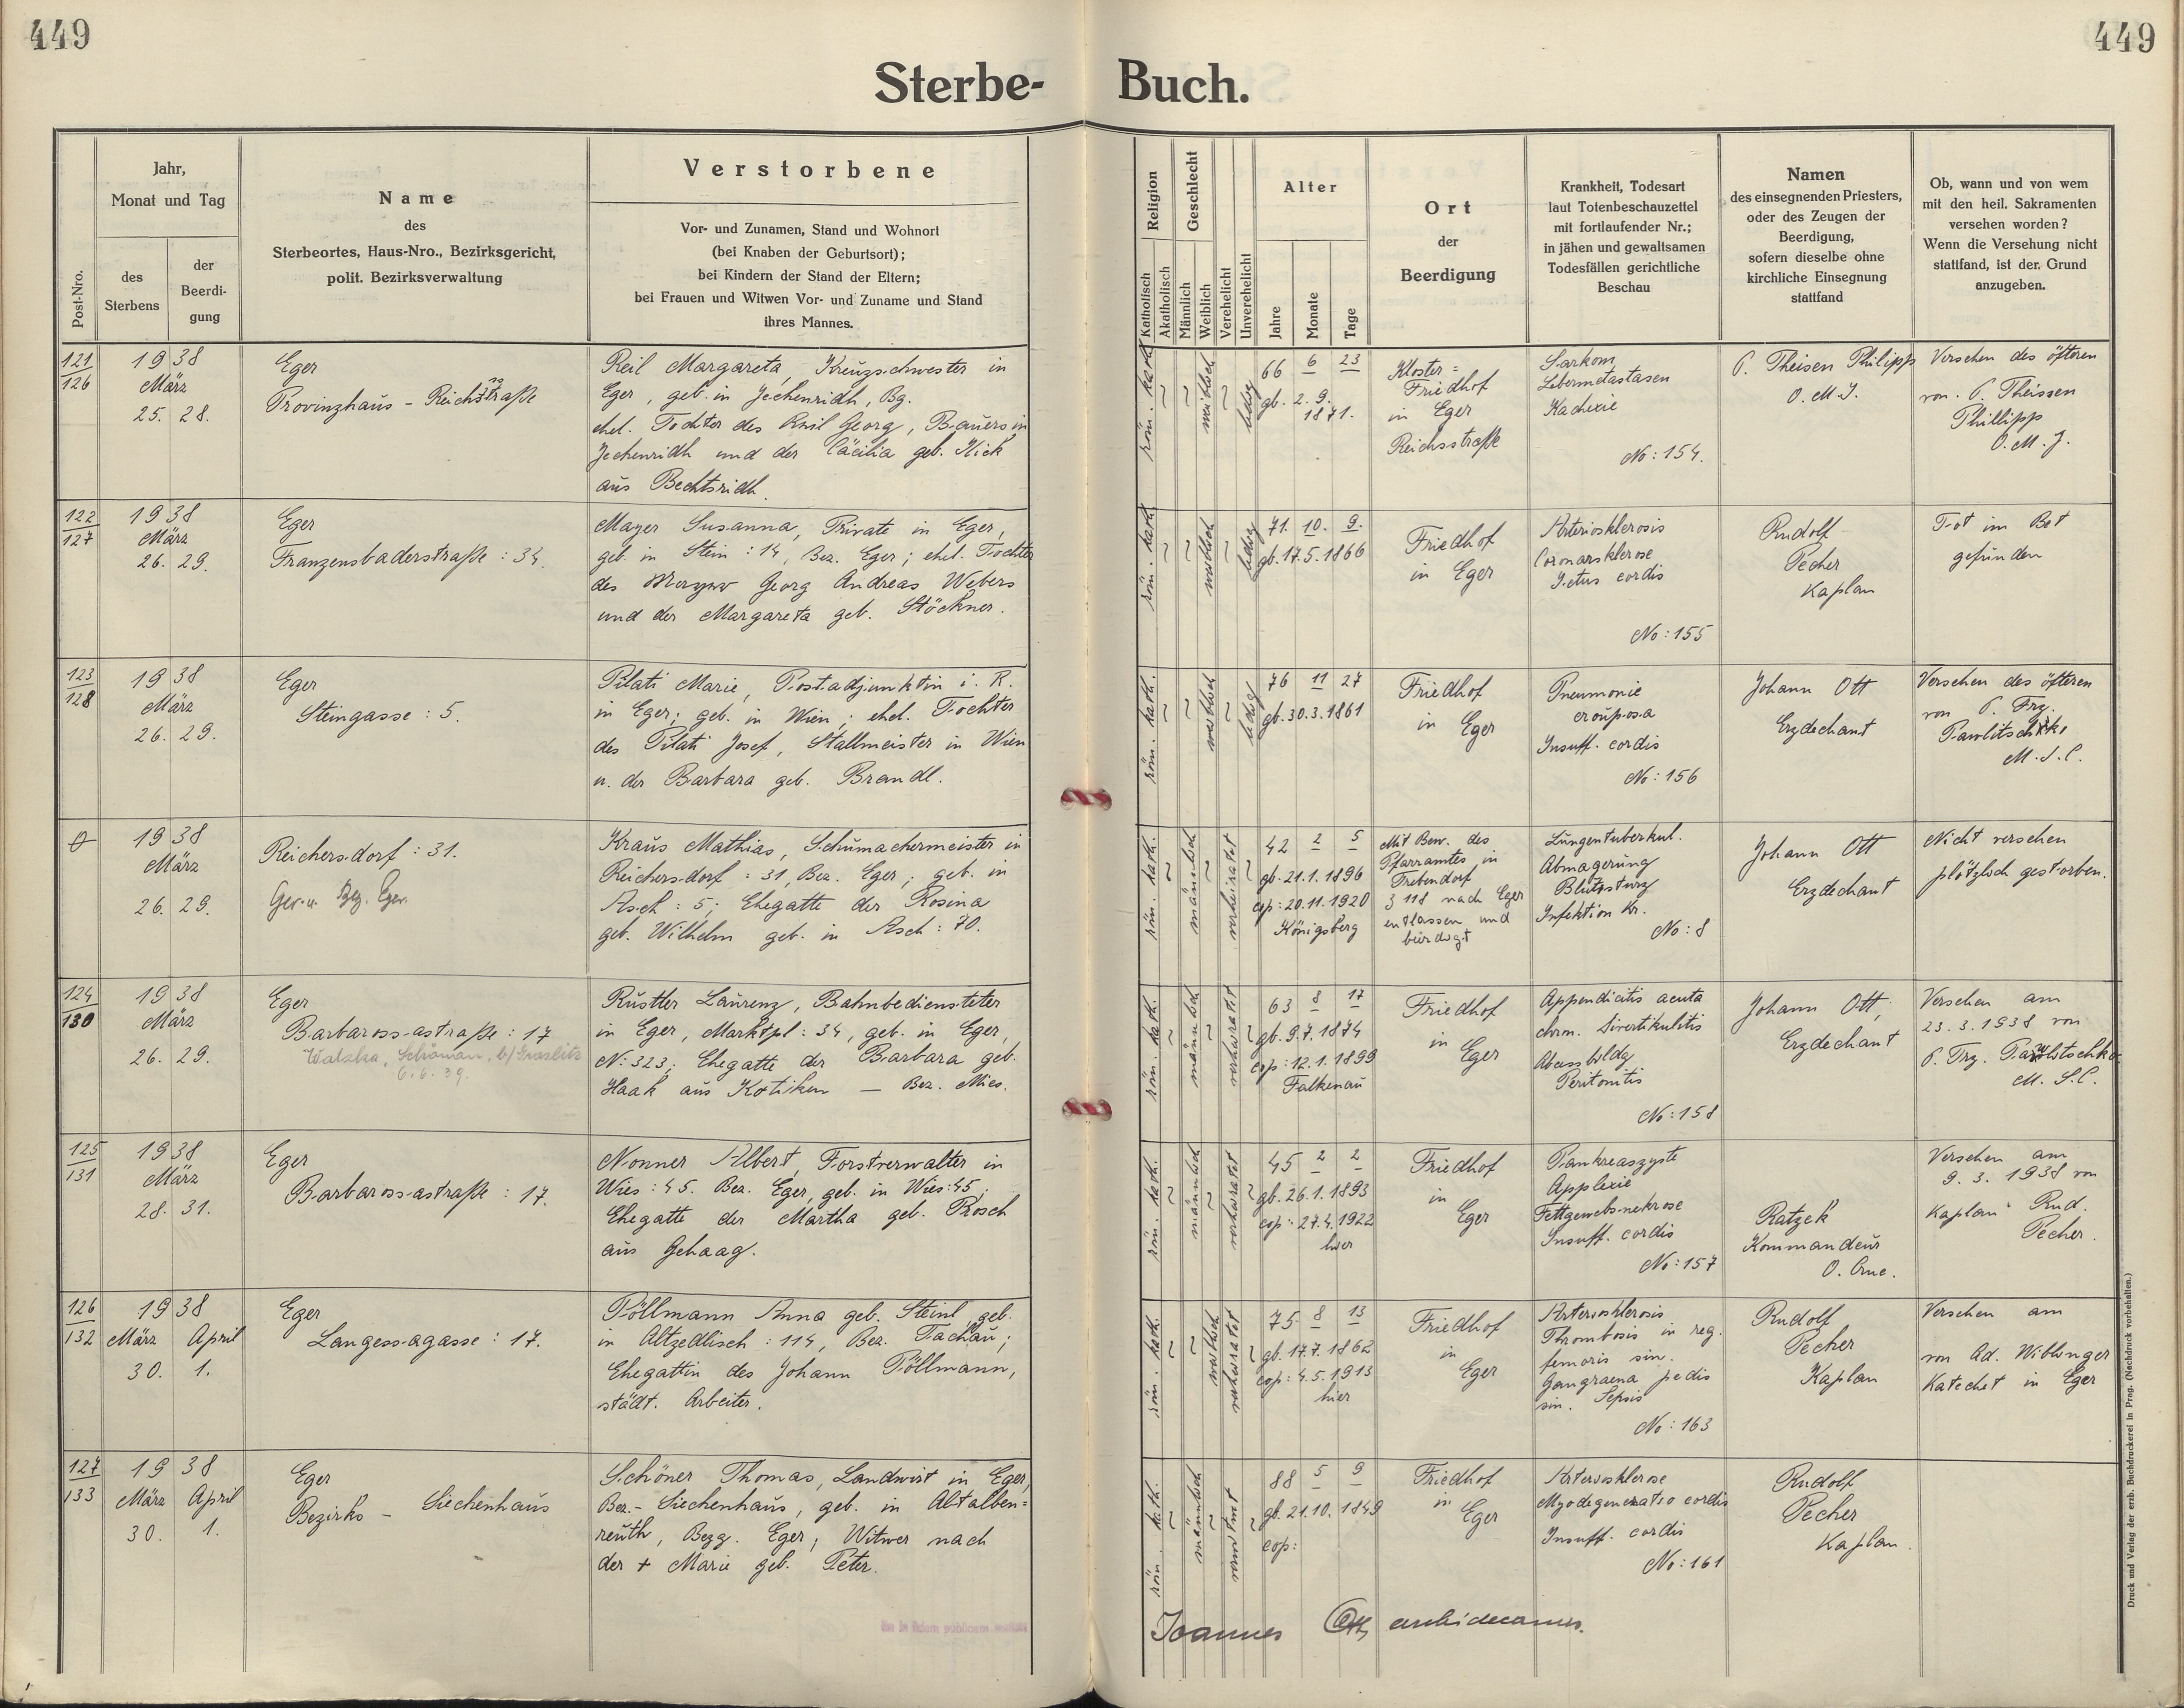 449
449
Sterbe- Buch.
Post-Nro.
Jahr,
Monat und Tag
des
Sterbens
der
Beerdi-
gung
Name
des
Sterbeortes, Haus-Nro., Bezirksgericht,
polit. Bezirksverwaltung
Verstorbene
Vor- und Zunamen, Stand und Wohnort
(bei Knaben der Geburtsort);
bei Kindern der Stand der Eltern;
bei Frauen und Witwen Vor- und Zuname und Stand
ihres Mannes.
Religion
Katholisch
Akatholisch
Geschlecht
Männlich
Weiblich
Verehelicht
Unverehelicht
Alter
Jahre
Monate
Tage
Ort
der
Beerdigung
Krankheit, Todesart
laut Totenbeschauzettel
mit fortlaufender Nr.;
in jähen und gewaltsamen
Todesfällen gerichtliche
Beschau
Namen
des einsegnenden Priesters,
oder des Zeugen der
Beerdigung,
sofern dieselbe ohne
kirchliche Einsegnung
stattfand
Ob, wann und von wem
mit den heil. Sakramenten
versehen worden?
Wenn die Versehung nicht
stattfand, ist der Grund
anzugeben.
121
126
1938
März
25. 28.
Eger
Provinzhaus - Reichsstraße
Reil Margareta, Kreuzschwester in
Eger, geb. in Jechenridh, Bg.
ehel. Tochter des Reil Georg, Bauers in
Jechenridh und der Cäcilia geb. Kick
aus Bechtsridh.
röm. kath.
weiblich
ledig
66 6 23
gb. 2. 9.
1871.
Kloster=
Friedhof
in Eger
Reichsstraße
Sarkom
Lebermetastasen
Kachexie
No: 154.
P. Theisen Philipp
O. M. J.
Versehen des öfteren
von P. Theissen
Phillipp
O. M. J.
122
127
1938
März
26. 29.
Eger
Franzensbaderstraße : 34.
Mayer Susanna, Private in Eger,
geb. in Stein : 14, Bez. Eger; ehel. Tochter
des Mayer Georg Andreas Webers
und der Margareta geb. Stöckner.
röm. kath.
weiblich
ledig
71. 10. 9.
gb. 17.5.1866
Friedhof
in Eger
Arteriosklerosis
Coronarsklerose
Ictus cordis
No: 155
Rudolf
Pecher
Kaplan
Tot im Bet
gefunden
123
128
1938
März
26. 29.
Eger
Steingasse : 5.
Pilati Marie, Postadjunktin i. R.
in Eger; geb. in Wien; ehel. Tochter
des Pilati Josef, Stallmeister in Wien
u. der Barbara geb. Brandl.
röm. kath.
weiblich
ledig
76 11 27
gb. 30.3.1861
Friedhof
in Eger
Pneumonie
crouposa
Insuff. cordis
No: 156
Johann Ott
Erzdechant
Versehen des öfteren
von P. Frz.
Pawlitschko
M. S. C.
0
1938
März
26. 29.
Reichersdorf : 31.
Ger. u. Bez. Eger.
Kraus Mathias, Schumachermeister in
Reichersdorf : 31, Bez. Eger; geb. in
Asch : 5; Ehegatte der Rosina
geb. Wilhelm geb. in Asch : 70.
röm. kath.
männlich
verheiratet
42 2 5
gb. 21.1.1896
cop: 20.11.1920
Königsberg
Mit Bew. des
Pfarramtes in
Trebendorf
§ 118 nach Eger
entlassen und
beerdigt
Lungentuberkul.
Abmagerung
Blutsturz
Infektion Kr.
No: 8
Johann Ott
Erzdechant
Nicht versehen
plötzlich gestorben.
124
130
1938
März
26. 29.
Eger
Barbarossastraße : 17
6.6.39.
Rustler Laurenz, Bahnbediensteter
in Eger, Marktpl : 34, geb. in Eger,
N: 323; Ehegatte der Barbara geb.
Haak aus Kotiken — Bez. Mies.
röm. kath.
männlich
verheiratet
63 8 17
gb. 9.7.1874
cop: 12.1.1899
Falkenau
Friedhof
in
Eger
Appendicitis acuta
chron. Divertikulitis
Abcessbildg
Peritonitis
No: 158
Johann Ott,
Erzdechant
Versehen am
23. 3. 1938 von
P. Frz. Pawlitschko
M. S. C.
125
131
1938
März
28. 31.
Eger
Barbarossastraße : 17.
Nonner Albert, Forstverwalter in
Wies : 45. Bez. Eger, geb. in Wies: 45,
Ehegatte der Martha geb. Prosch
aus Gehaag.
röm. kath.
männlich
verheiratet
45 2 2
gb. 26.1.1893
cop: 27.4.1922
hier
Friedhof
in
Eger
Pankreaszyste
Applexie
Fettgewebsnekrose
Insuff. cordis
No: 157
Ratzek
Kommandeur
O. Cruc.
Versehen am
9. 3. 1938 von
Kaplan Rud.
Pecher.
126
132
1938
März April
30. 1.
Eger
Langessagasse : 17.
Pöllmann Anna geb. Steinl, geb.
in Altzedlisch : 114, Bez. Tachau;
Ehegattin des Johann Pöllmann,
städt. Arbeiter.
röm. kath.
weiblich
verheiratet
75 8 13
gb. 17.7.1862
cop: 4.5.1913
hier
Friedhof
in
Eger
Arteriosklerosis
Thrombosis in reg.
femoris sin.
Gangraena pedis
sin. Sepsis
No: 163
Rudolf
Pecher
Kaplan
Versehen am
von Ad. Wiblinger
Katechet in Eger
127
133
1938
März April
30. 1.
Eger
Bezirks - Siechenhaus
Schöner Thomas, Landwirt in Eger,
Bez.- Siechenhaus, geb. in Altalben=
reuth, Bezg. Eger; Witwer nach
der + Marie geb. Peter.
röm. kath.
männlich
verwitwet
88 5 9
gb. 21.10.1849
cop:
Friedhof
in
Eger
Arteriosklerose
Myodegeneratio cordis
Insuff. cordis
No: 161
Rudolf
Pecher
Kaplan.
Joannes Ott archidecanus.
Druck und Verlag der erzb. Buchdruckerei in Prag. (Nachdruck vorbehalten.)